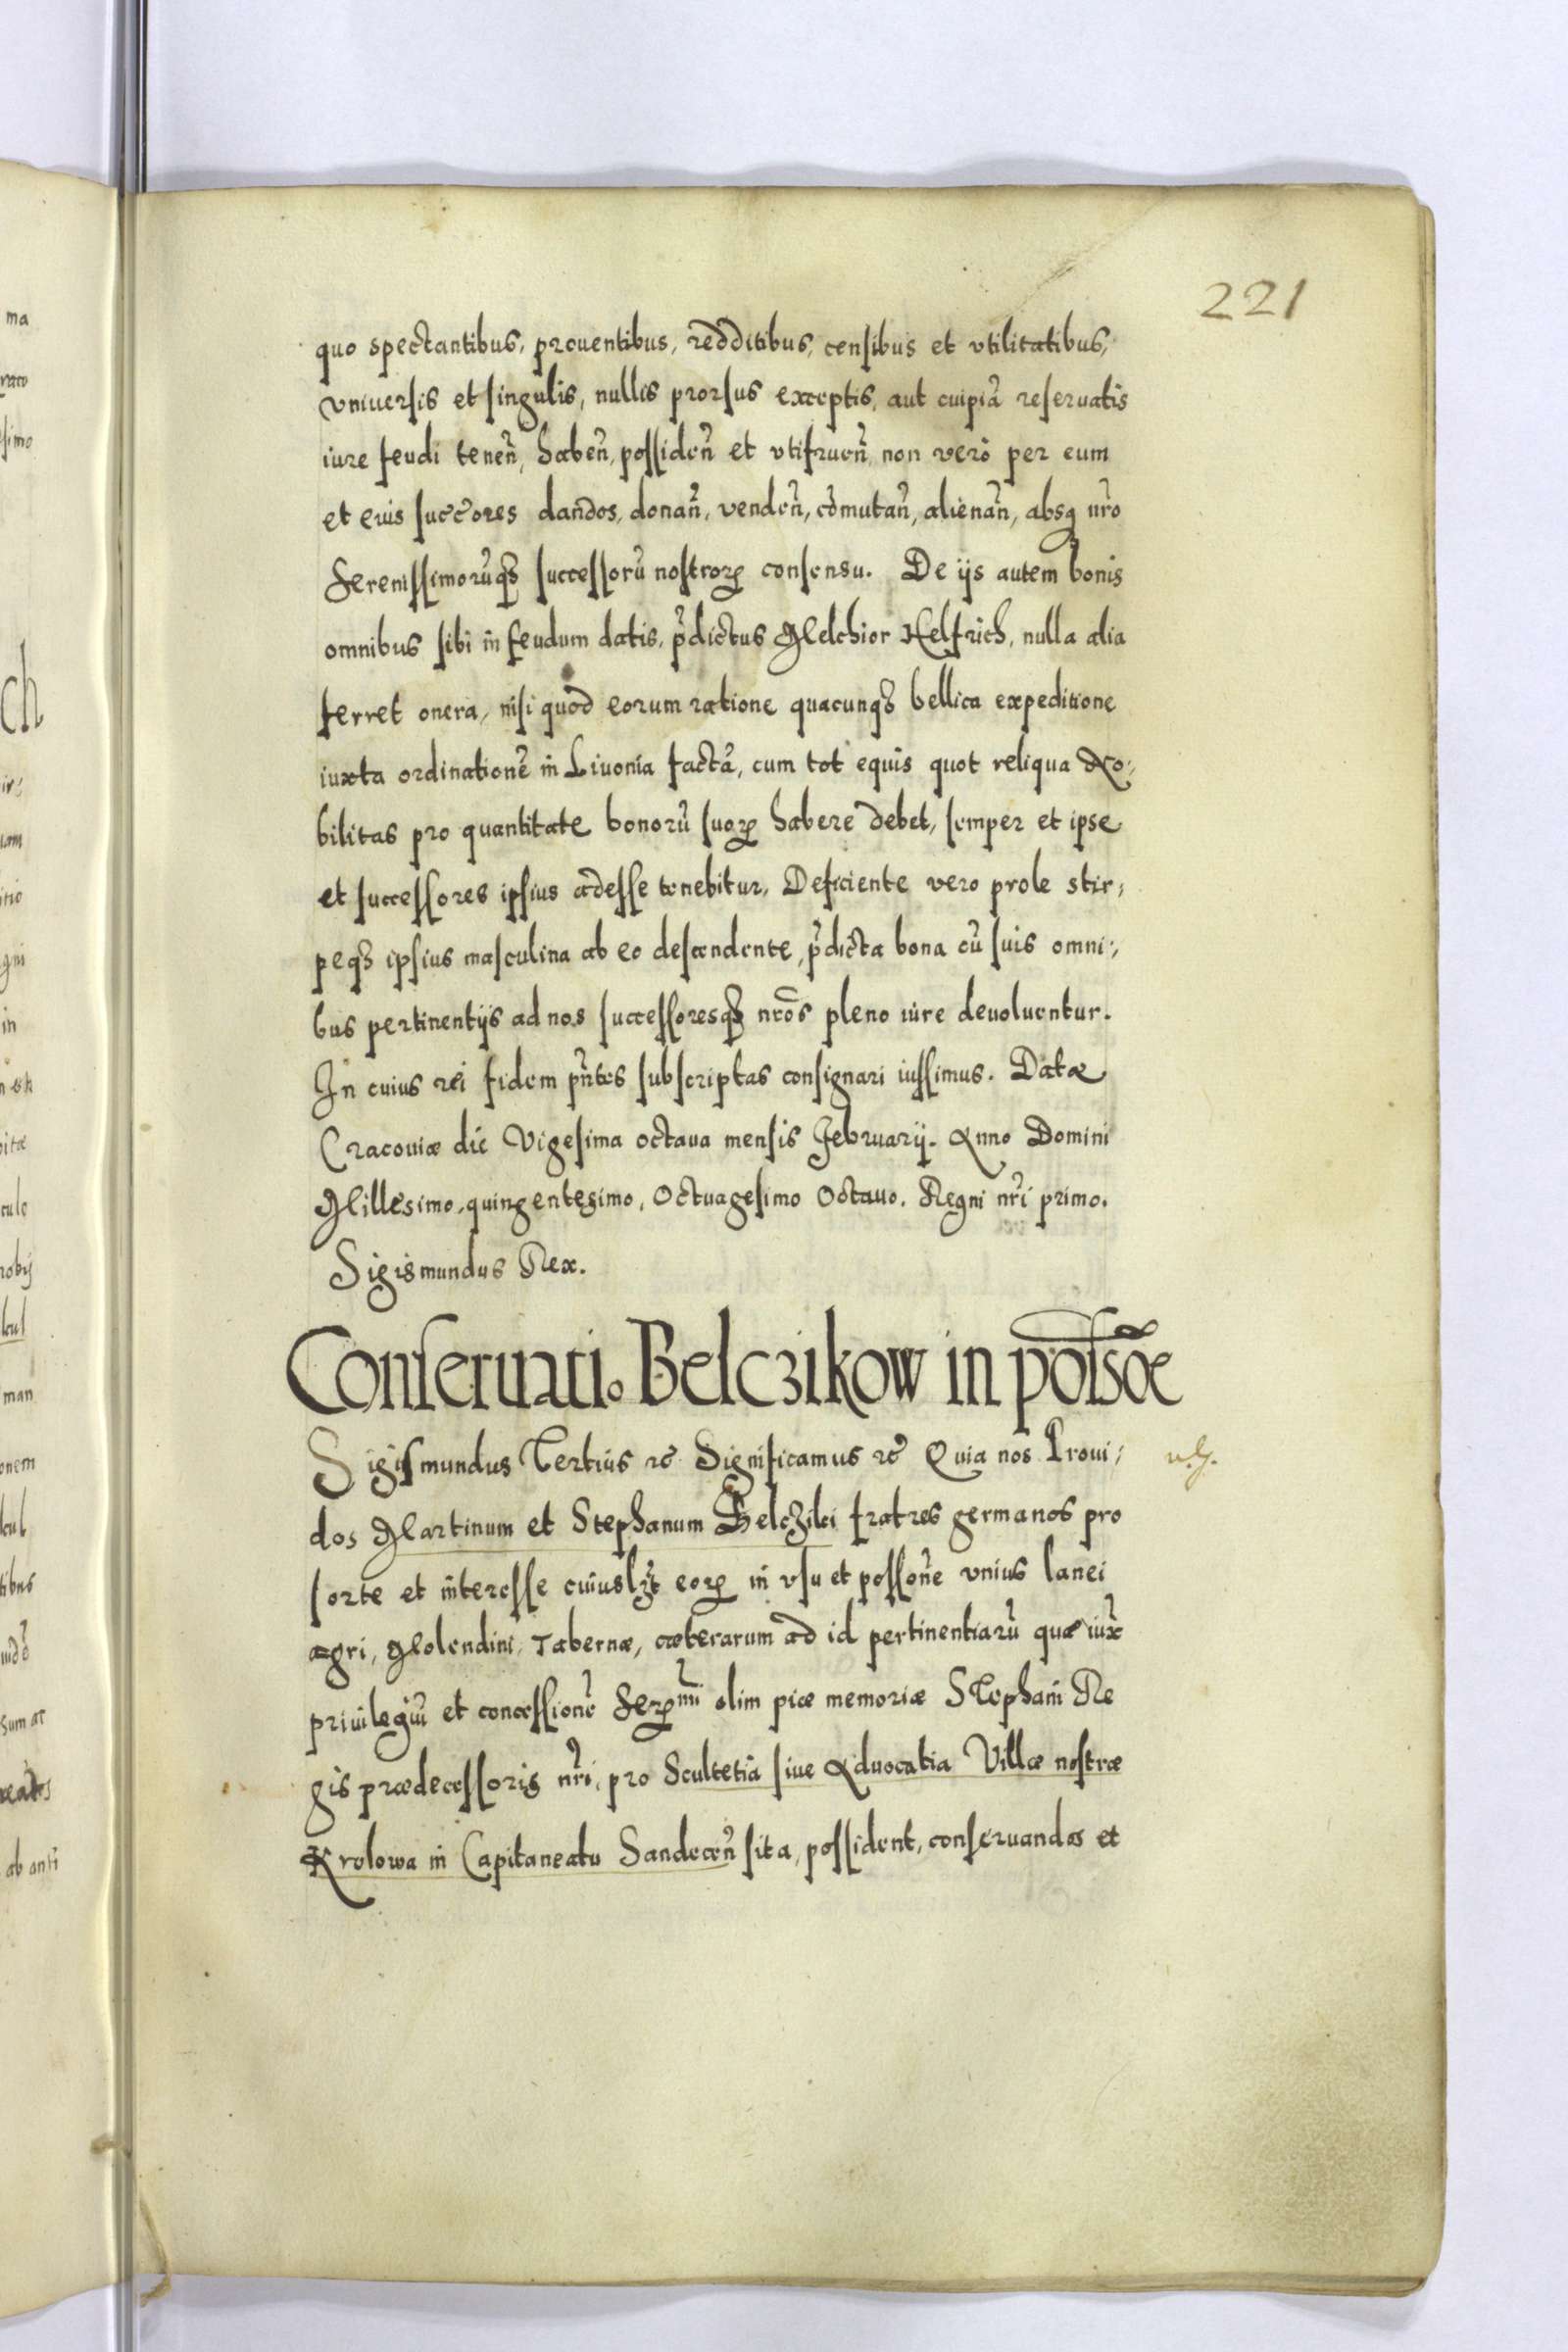 221
quo spectantibus, prouentibus, redditibus, censibus et vtilitatibus,
vniuersis et singulis, nullis prorsus exceptis, aut cuipiã reseruatis
iure feudi teneñ, habeñ, possideñ et vtifrueñ, non vero per eum
et eius succ̃ores dandos, donañ, vendeñ, cõmutañ, alienañ, absq nr̃o
Serenissimorũq₃ successorũ nostroꝝ consensu. De ijs autem bonis
omnibus sibi in feudum datis, p̃dictus Melchior Helfrich, nulla alia
ferret onera, nisi quod eorum ratione quacunq₃ bellica expeditione
iuxta ordinationẽ in Liuonia factã, cum tot equis quot reliqua No:
bilitas pro quantitate bonorũ suoꝝ habere debet, semper et ipse
et successores ipsius adesse tenebitur, Deficiente vero prole stir:
peq₃ ipsius masculina ab eo descendente, p̃dicta bona cũ suis omni:
bus pertinentijs ad nos successoresq₃ nr̃os pleno iure deuoluentur.
In cuius rei fidem pñtes subscriptas consignari iussimus. Datæ
Cracouiæ die Vigesima octaua mensis Februarij. Anno Domini
Millesimo, quingentesimo, Octuagesimo Octauo. Regni nr̃i primo.
Sigismundus Rex.
Conseruatio Belczikow in possõe
Sigismundus Tertius ꝛc̃ Significamus ꝛc̃ Quia nos Proui:
dos Martinum et Stephanum Belczilei fratres germanos pro
sorte et interesse cuiuslꝫt eoꝝ in vsu et possoñe vnius lanei
agri, Molendini, Tabernæ, cæterarum ad id pertinentiarũ quæ iux̃
priuilegiũ et concessionẽ Serꝫmi olim piæ memoriæ Stephani Re
gis prædecessoris nr̃i, pro Scultetia siue Aduocatia Villæ nostræ
Krolowa in Capitaneatu Sandeceñ sita, possident, conseruandos et